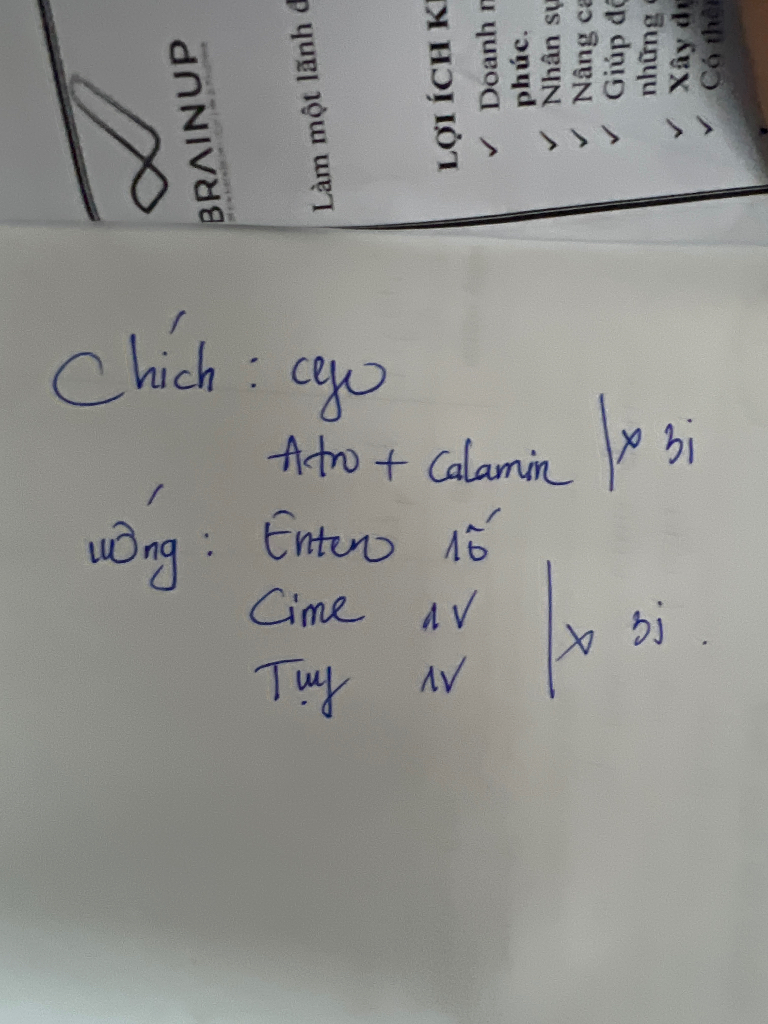 BRAINUP
Làm một lãnh đ
LỢI ÍCH KH
✓ Doanh n
phúc.
✓ Nhân sự
✓ Nâng ca
✓ Giúp độ
những
✓ Xây dự
✓ Có thể
Chích : cefo
Atro + Calamin | x 3j
uống : Entero 1ố
Cime 1V
Tụy 1V | x 3j .